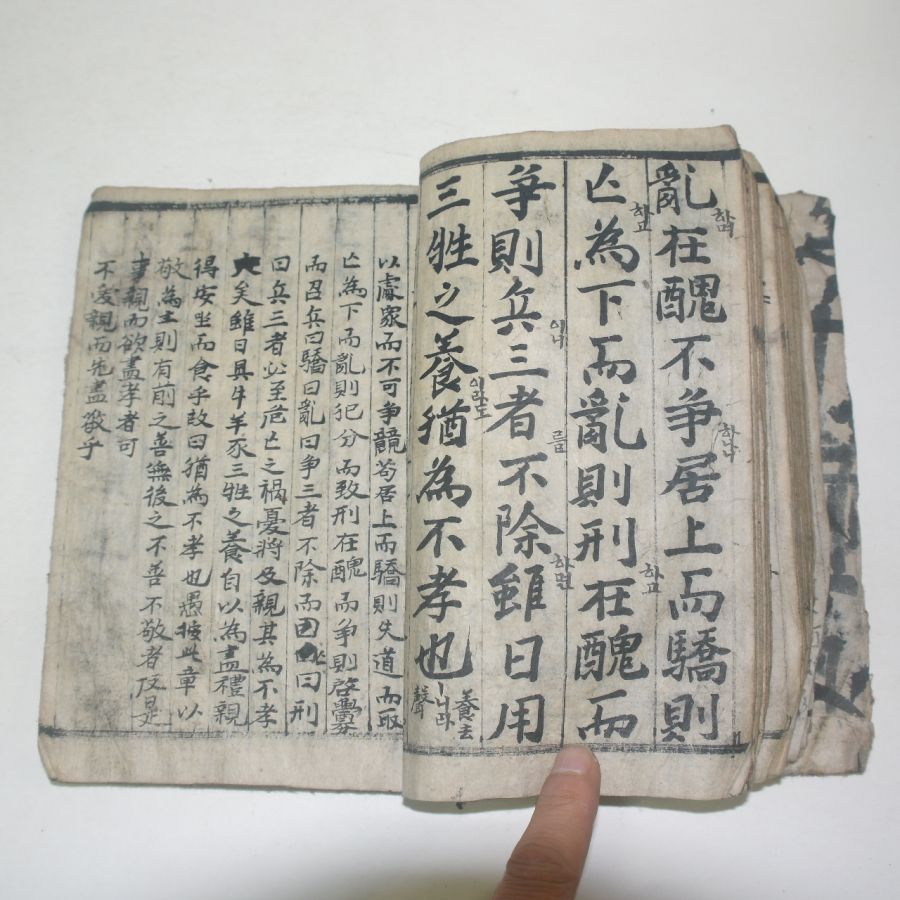 亂하며在醜不爭하나居上而驕則
亡하고為下而亂則刑하고在醜而
爭則兵이니三者를不除하면雖日用
三牲之養이라도猶為不孝也니라養去聲
以處家而不可爭競苟居上而驕則失道而取
亡為下而亂則犯分而致刑在醜而爭則啓釁
而召兵曰驕曰亂曰爭三者不除而曰亡曰刑
曰兵三者必至危亡之禍憂將及親其為不孝
大矣雖日具牛羊豕三牲之養自以為盡禮親
得安坐而食乎故曰猶為不孝也愚按此章以
敬為主則有前之善無後之不善不敬者反是
事親而欲盡孝者可
不愛親而先盡敬乎